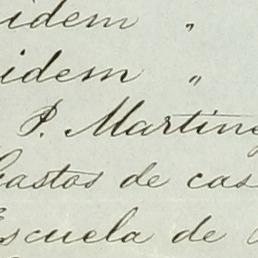 idem "
idem "
P. Martine
Gastos de cas
Escuela de